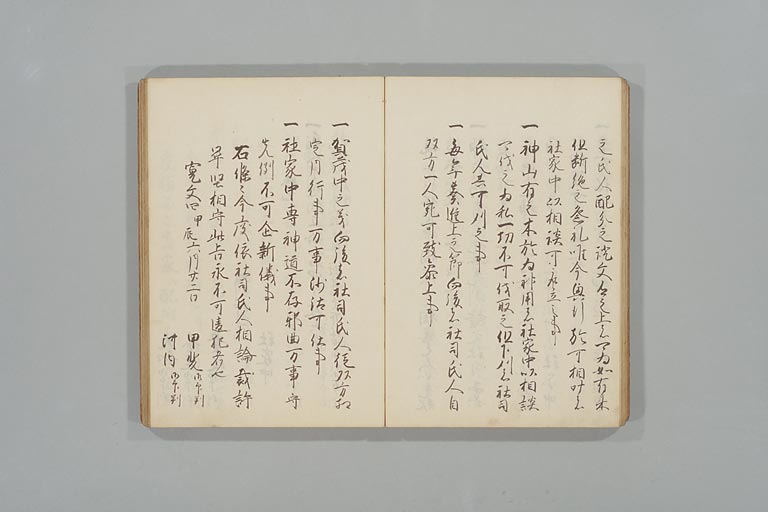 之氏人配分之證文有之上者可為如有来
但断絶之祭礼唯今興行於可相叶者
社家中以相談可取立之事
一 神山有之木於為神用者社家中以相談
可伐之為私一切不可伐取之但下刈者社司
氏人者可刈之事
一 毎年葵進上之節向後者社司氏人自
双方一人宛可致参上事
一 賀茂中之義向後者社司氏人従双方相
定月行事万事沙汰可仕事
一 社家中専神道不存邪曲万事守
先例不可企新儀事
右條々今度依社司氏人相論裁許
畢堅相守此旨永不可違犯者也
寛文四甲辰六月廿二日
甲斐御印判
河内御印判